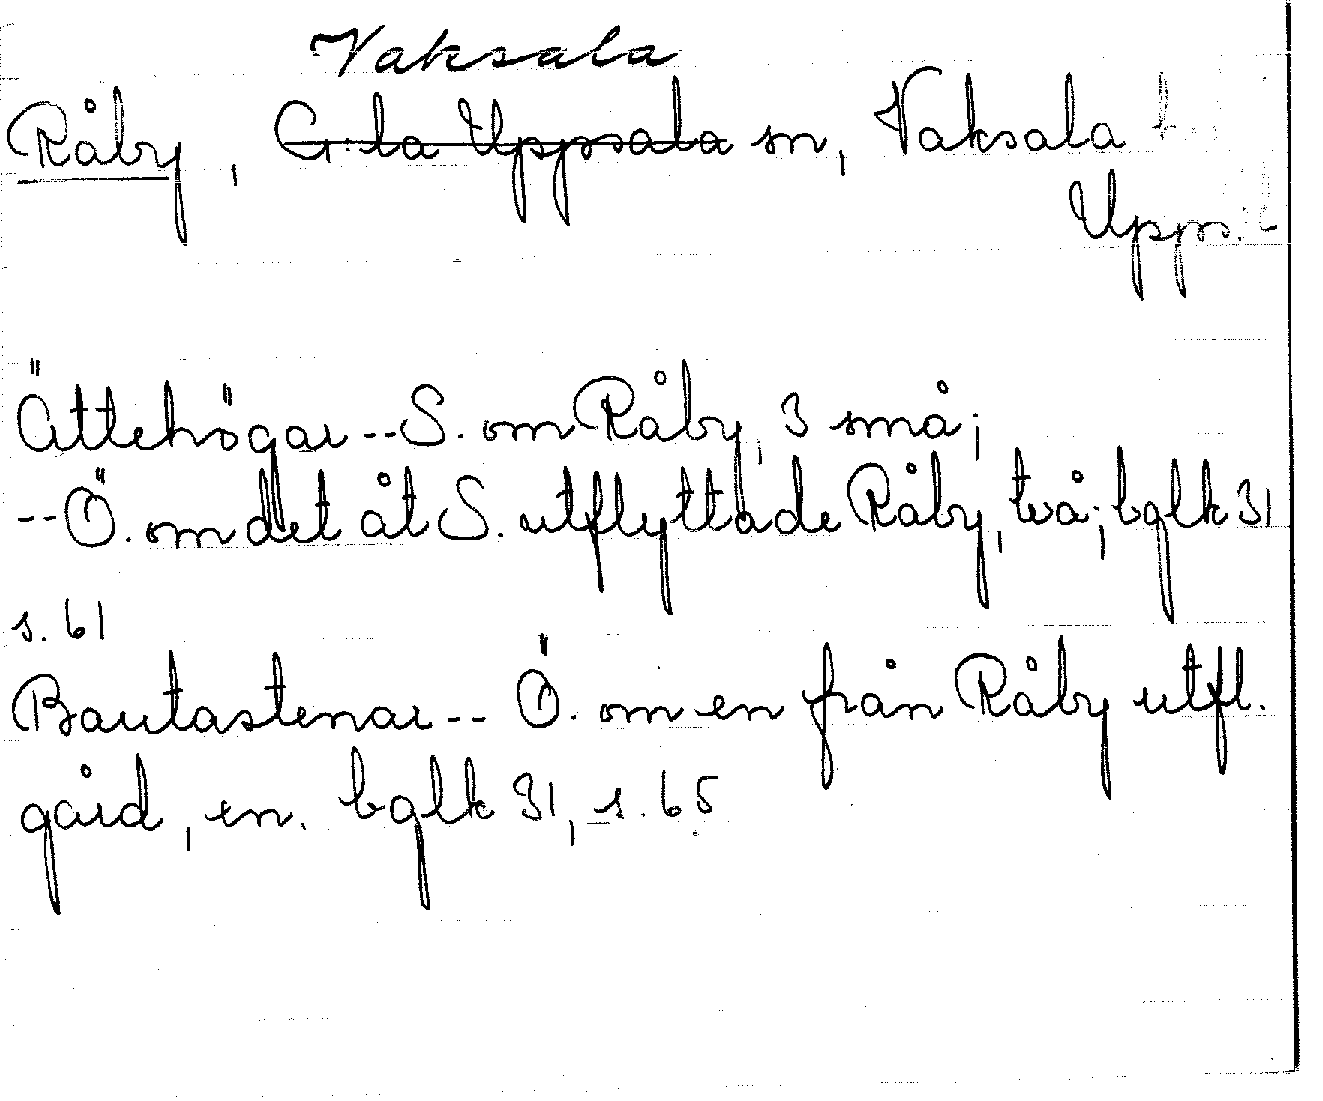 Vaksala
Råby, G:la Uppsala sn, Vaksala
Upps. l
Ättehögar--S. om Råby, 3 små;
--Ö. om det åt S. utflyttade Råby, två; bglk 31
s. 61
Bautastenar-- Ö. om en från Råby utfl.
gård, en. bglk 31, s. 65